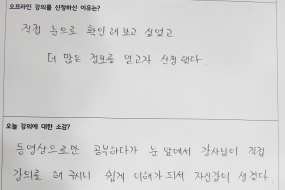 오프라인 강의를 신청하신 이유는?
직접 눈으로 확인해보고 싶었고
더 많은 정보를 얻고자 신청했다.
오늘 강의에 대한 소감?
동영상으로만 공부하다가 눈 앞에서 강사님이 직접
강의를 해 주시니 쉽게 이해가 되서 자신감이 생겼다.